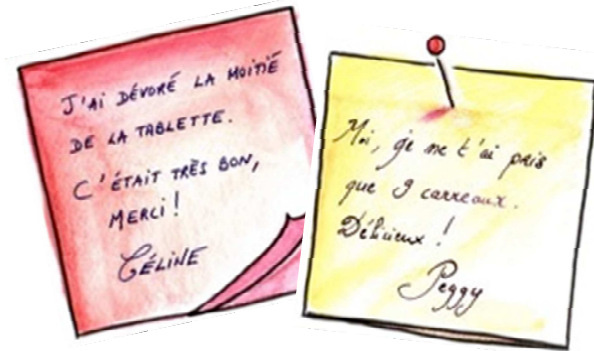 J'AI DÉVORÉ LA MOITIÉ
DE LA TABLETTE.
C'ÉTAIT TRÈS BON,
MERCI !
CÉLINE
Moi, je ne t'ai pris
que 9 carreaux.
Délicieux !
Peggy